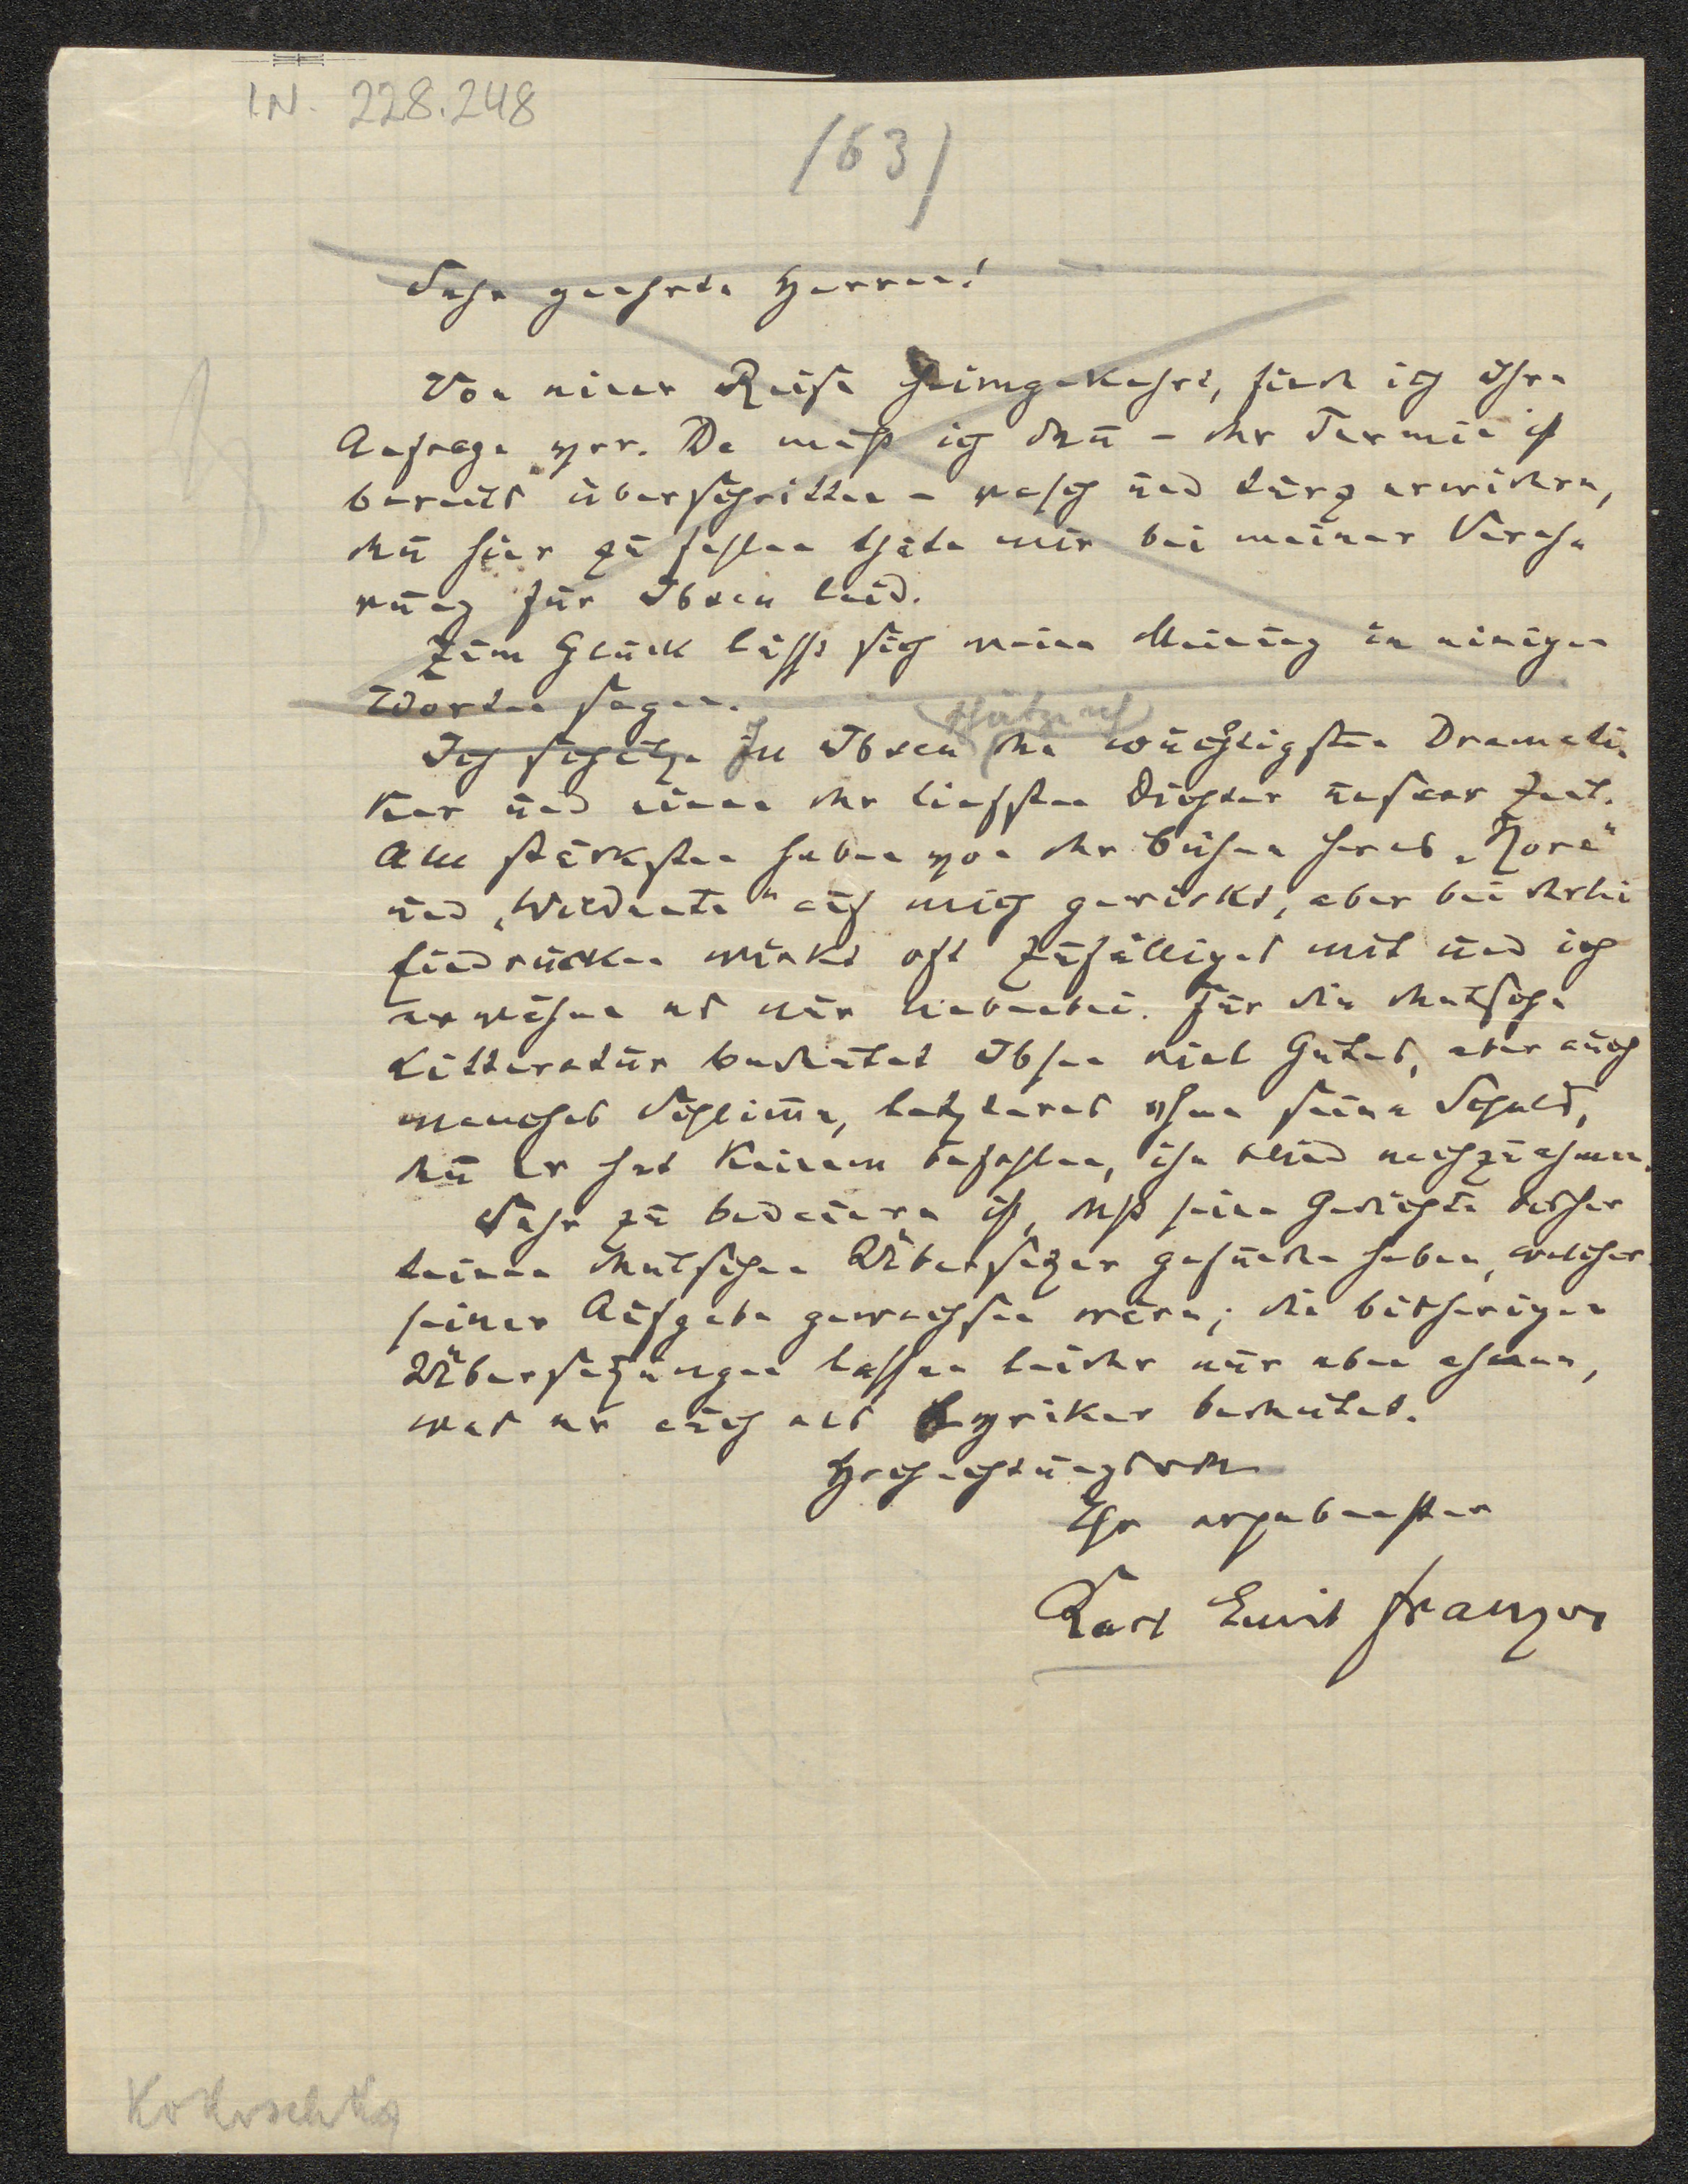 I.N. 228.248
/63/
Sehr geehrte Herren!
Von einer Reise heimgekehrt, finde ich Ihre
Anfrage vor. Da muß ich denn – der Termin ist
bereits überschritten – rasch und kurz erwidern,
denn hier zu fehlen thäte mir bei meiner Vereh-
rung für Ibsen leid.
Zum Glück läßt sich meine Meinung in einigen
Worten sagen.
schätze ich
Ich schätze In Ibsen den wuchtigsten Dramati-
ker und einen der tiefsten Dichter unserer Zeit.
Am stärksten haben von der Bühne herab „Nora“
und „Wildente“ auf mich gewirkt, aber bei derlei
Eindrücken wirkt oft Zufälliges mit und ich
erwähne es nur nebenbei. Für die deutsche
Litteratur bedeutet Ibsen viel Gutes, aber auch
manches Schlimme, letzteres ohne seine Schuld,
denn er hat Keinem befohlen, ihn blind nachzuahmen.
Sehr zu bedauern ist, daß seine Gedichte bisher
keinen deutschen Übersetzer gefunden haben, welcher
seiner Aufgabe gewachsen wäre; die bisherigen
Übersetzungen lassen leider nur eben ahnen,
was er auch als Lyriker bedeutet.
Hochachtungsvoll
Ihr ergebenster
Karl Emil Franzos
Kokoschka